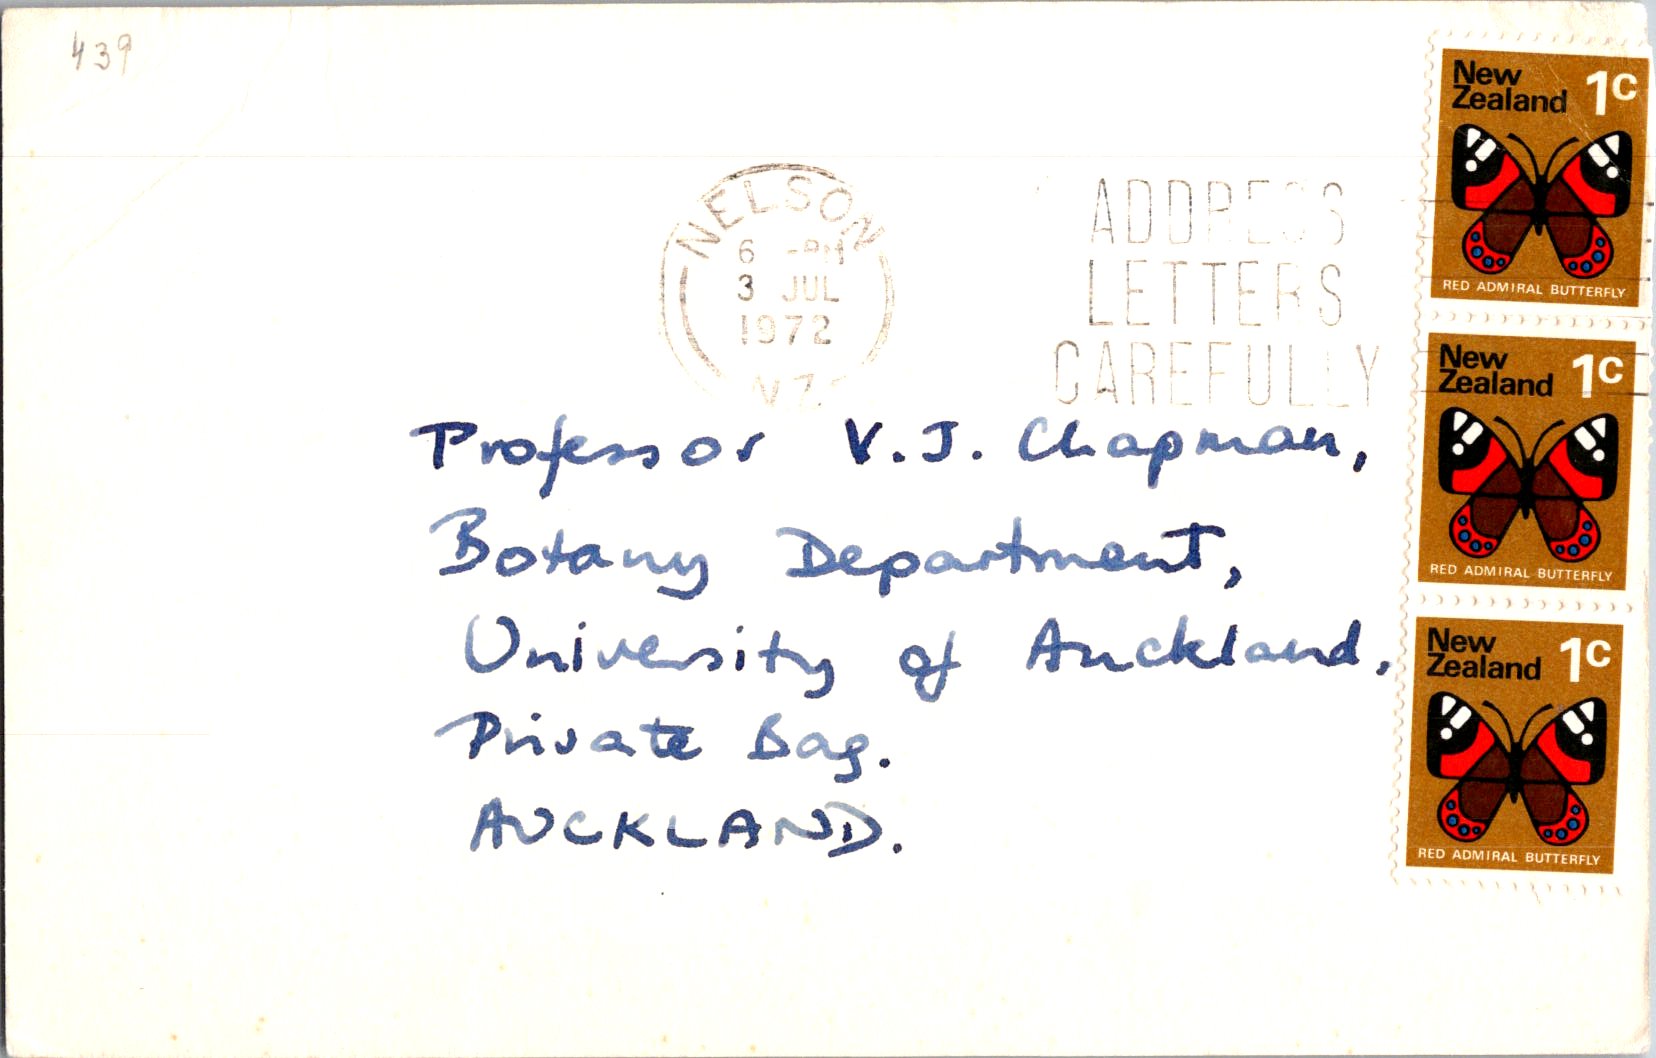 439
NELSON
6 -PM
3 JUL
1972
N.Z.
ADDRESS
LETTERS
CAREFULLY
New
Zealand
1c
RED ADMIRAL BUTTERFLY
New
Zealand
1c
RED ADMIRAL BUTTERFLY
New
Zealand
1c
RED ADMIRAL BUTTERFLY
Professor V.J. Chapman,
Botany Department,
University of Auckland,
Private Bag.
AUCKLAND.